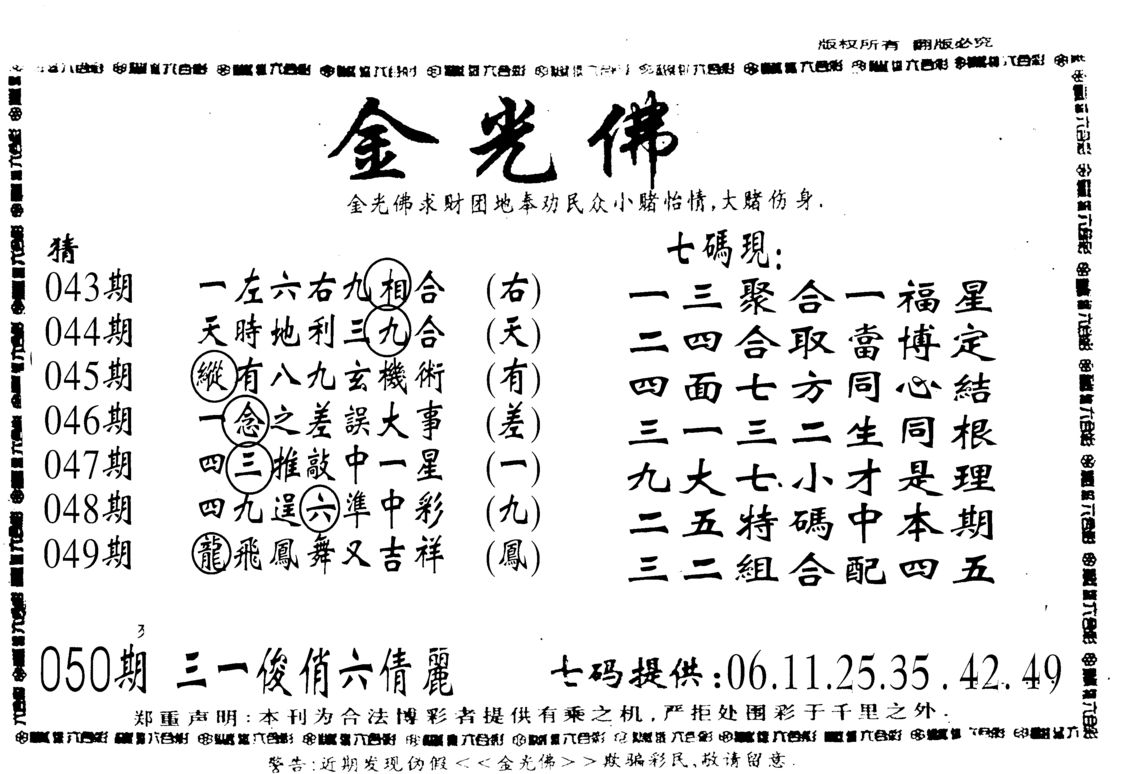 版权所有 翻版必究
金光佛
金光佛求财团地奉劝民众小赌怡情,大赌伤身.
猜
043期 一左六右九相合 (右)
044期 天時地利三九合 (天)
045期 縱有八九玄機術 (有)
046期 一念之差誤大事 (差)
047期 四三推敲中一星 (一)
048期 四九逞六準中彩 (九)
049期 龍飛鳳舞又吉祥 (鳳)
七碼現:
一三聚合一福星
二四合取當博定
四面七方同心結
三一三二生同根
九大七小才是理
二五特碼中本期
三二組合配四五
050期 三一俊俏六倩麗
七码提供:06.11.25.35.42.49
郑重声明:本刊为合法博彩者提供有乘之机,严拒处围彩于千里之外.
警告:近期发现伪假<<金光佛>>欺骗彩民,敬请留意.